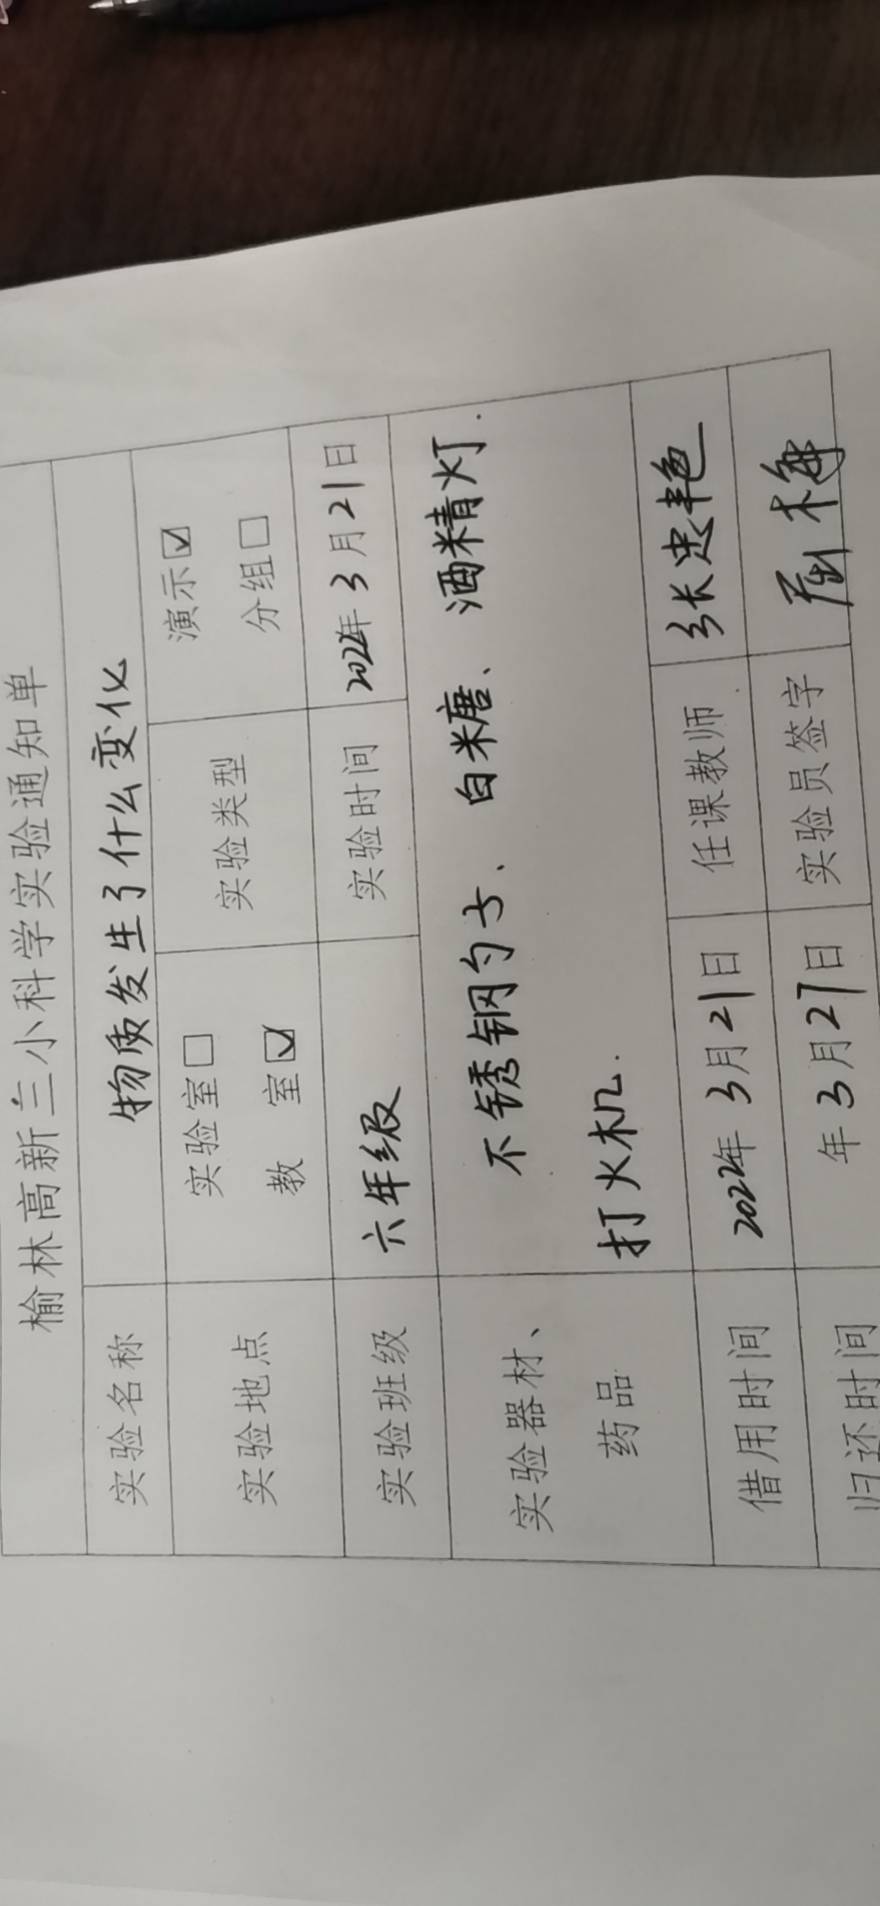 榆林高新三小科学实验通知单
实验名称 物质发生了什么变化
实验地点 实验室□ 教 室☑ 实验类型 演示☑ 分组□
实验班级 六年级 实验时间 2022年3月21日
实验器材、药品 不锈钢勺子、白糖、酒精灯.
打火机.
借用时间 2022年3月21日 任课教师 张忠艳
归还时间 年3月27日 实验员签字